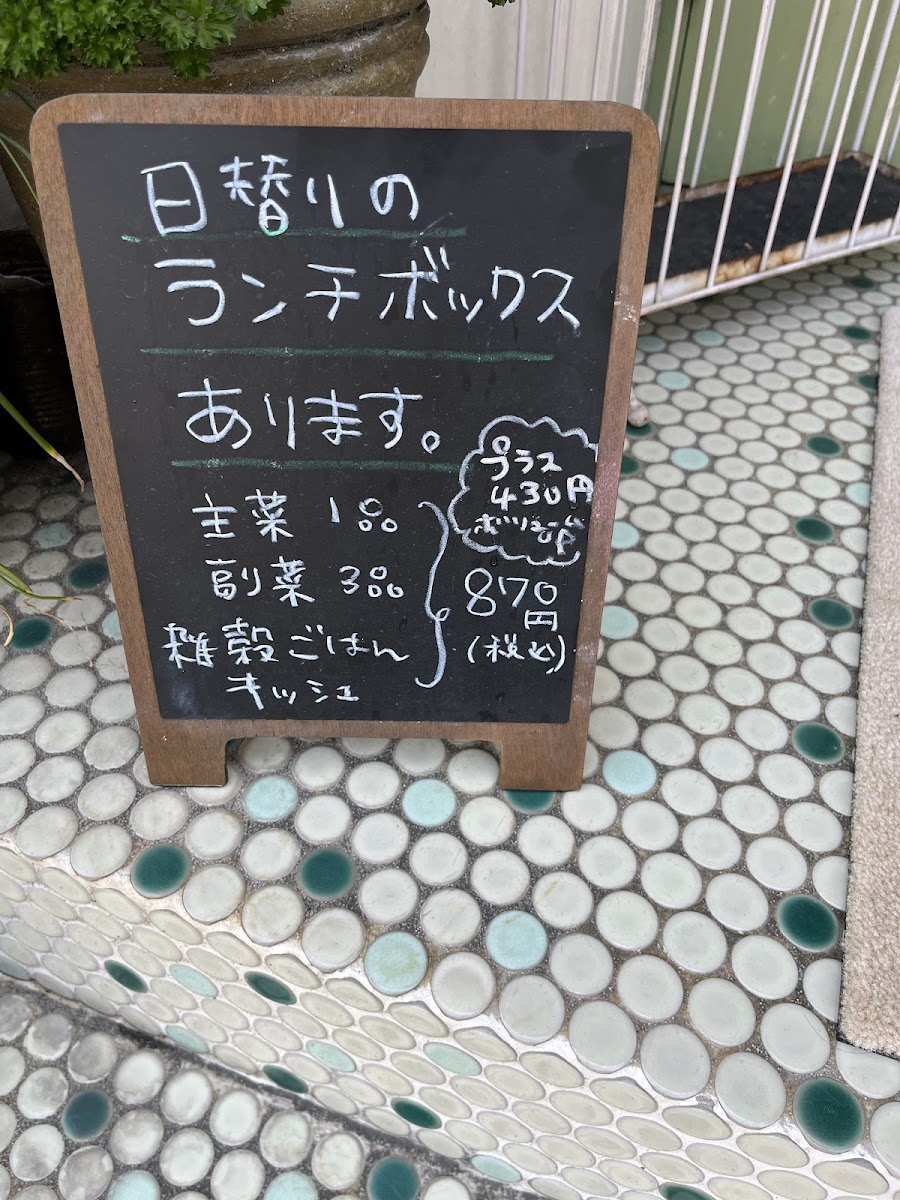 日替りの
ランチボックス
あります。
プラス
430円
ボリューム
UP
主菜 1品
副菜 3品
雑穀ごはん
キッシュ
870
円
(税込)